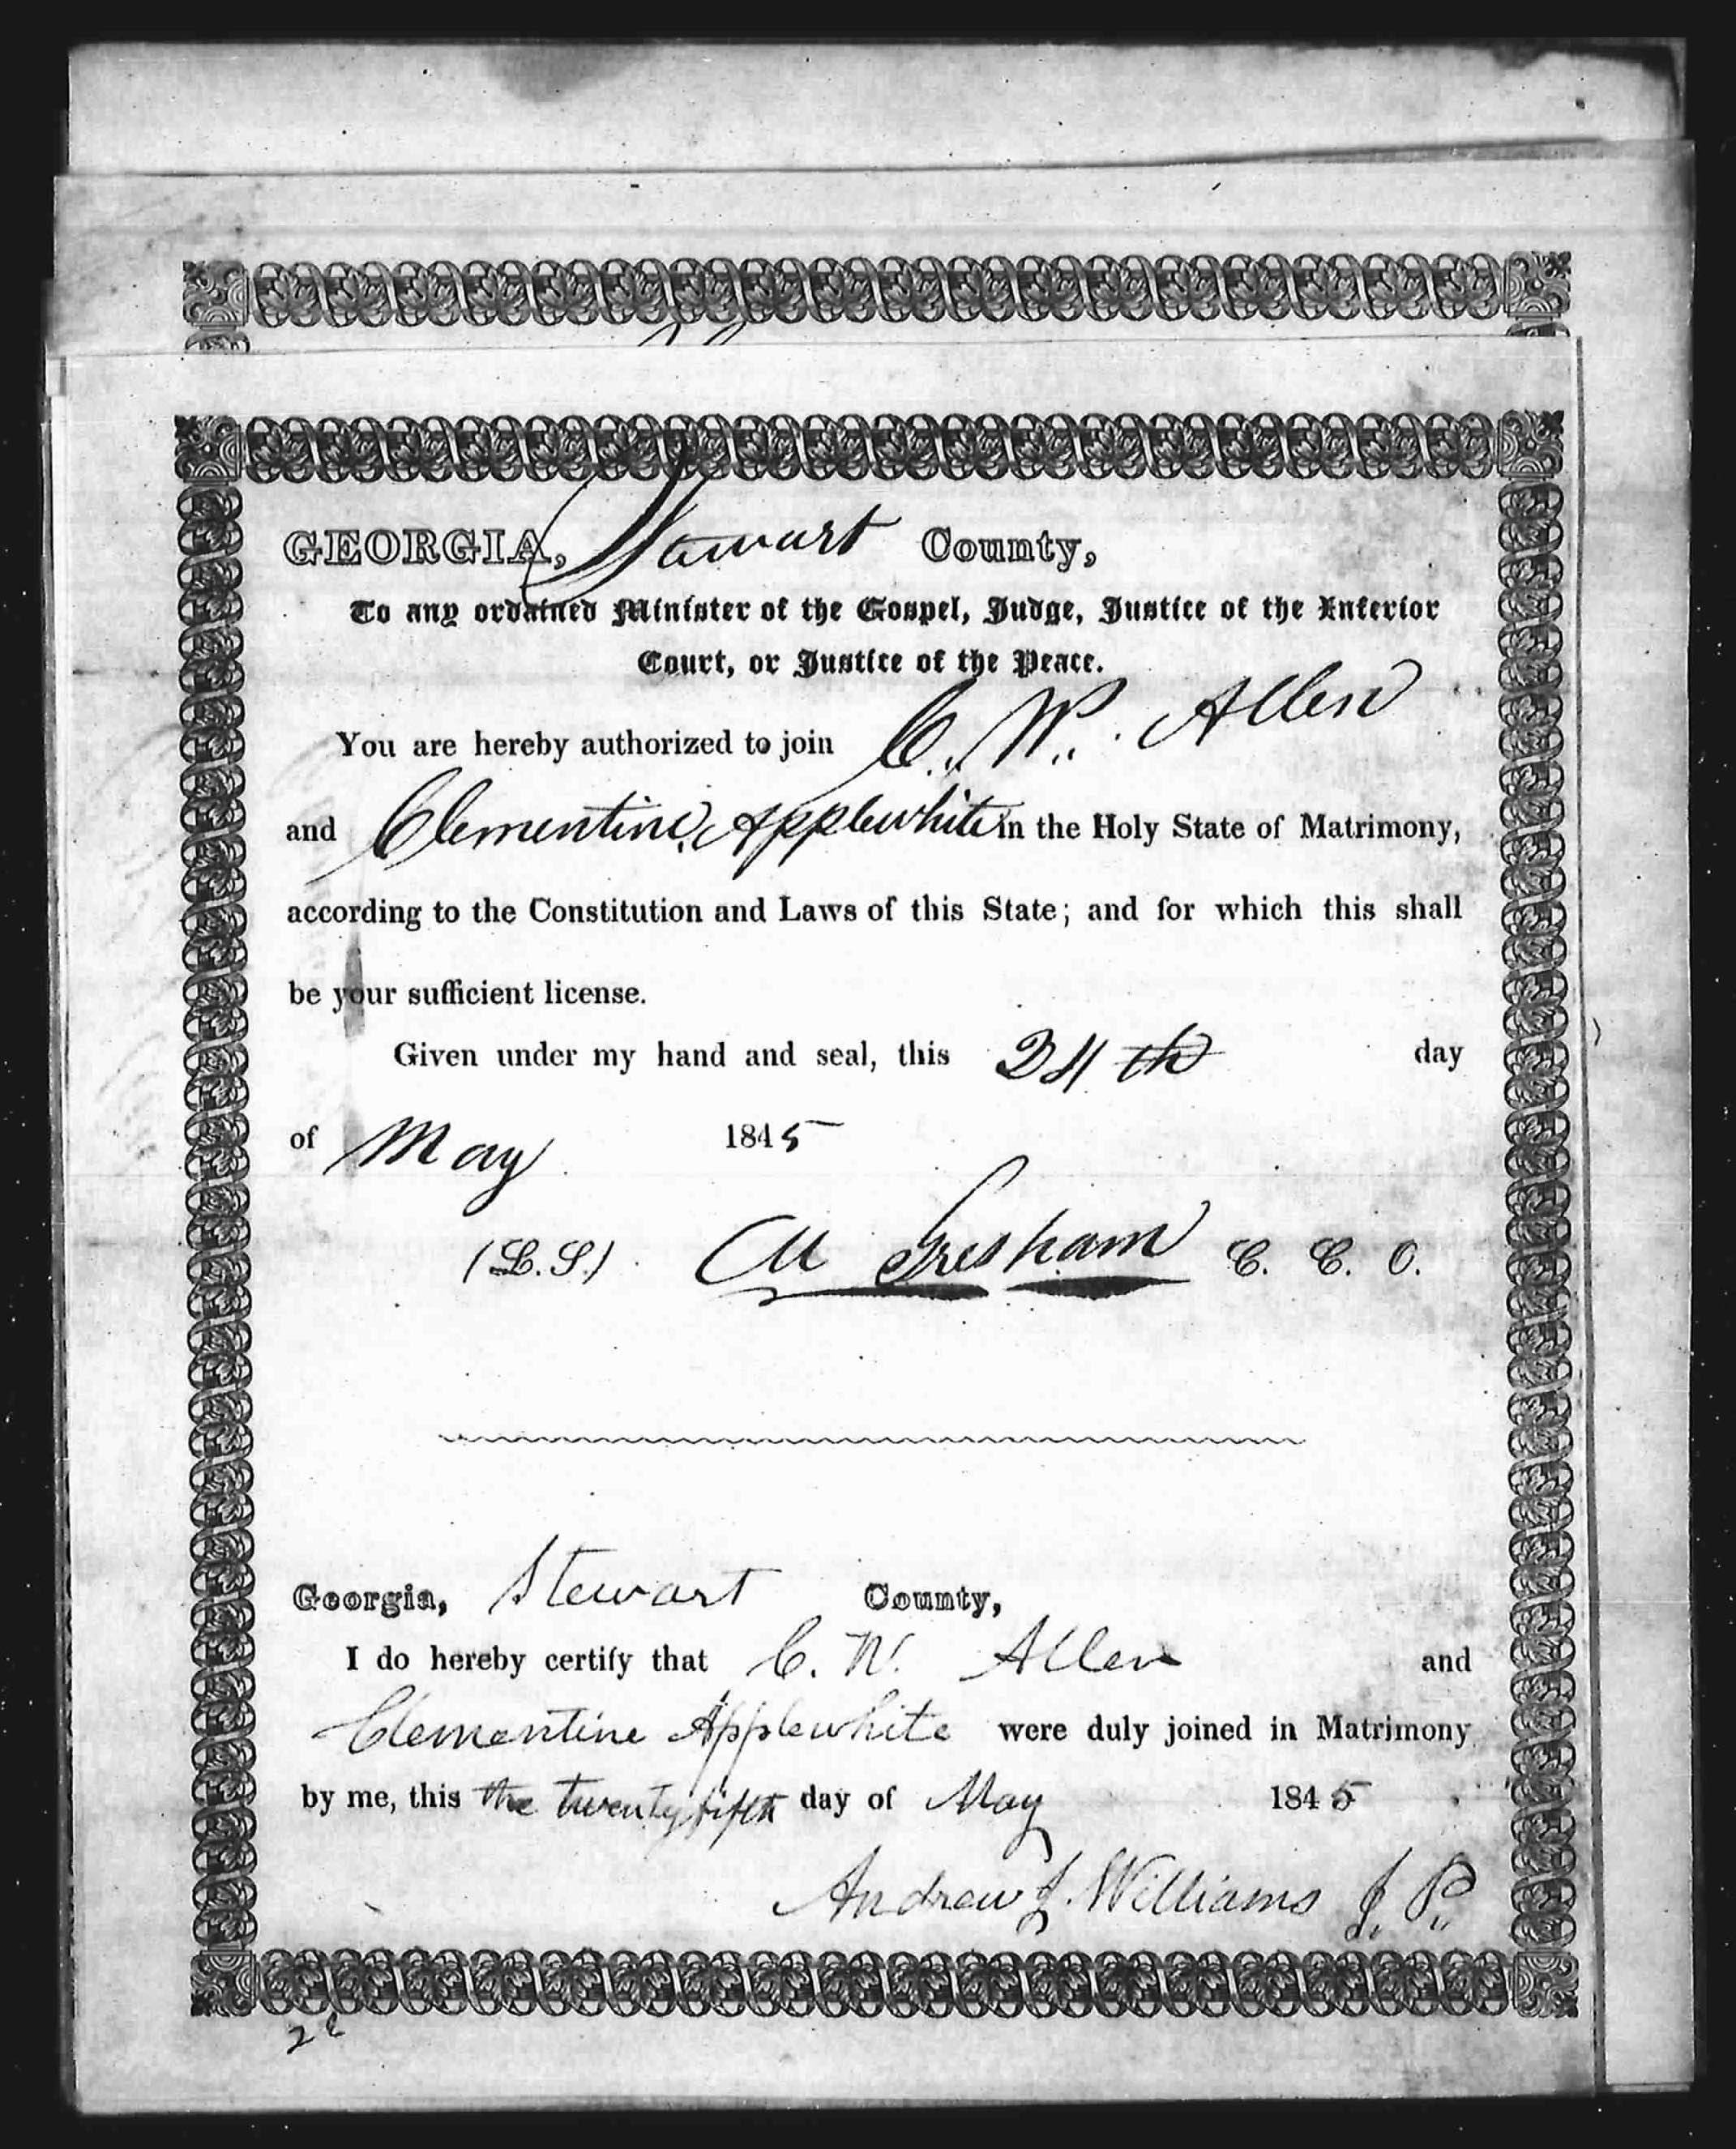 GEORGIA, Stewart County,
To any ordained Minister of the Gospel, Judge, Justice of the Inferior
Court, or Justice of the Peace.
You are hereby authorized to join C. W. Allen
and Clementine Applewhite in the Holy State of Matrimony,
according to the Constitution and Laws of this State; and for which this shall
be your sufficient license.
Given under my hand and seal, this 24th day
of May 1845
(L.S.) M Gresham C. C. O.
Georgia, Stewart County,
I do hereby certify that C. W. Allen and
Clementine Applewhite were duly joined in Matrimony
by me, this the twenty fifth day of May 1845
Andrew J. Williams J. P.